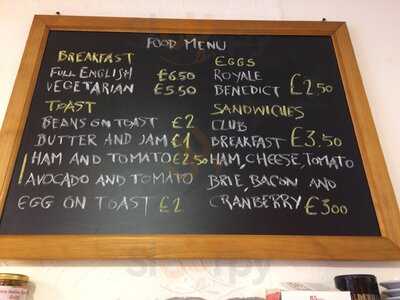 FOOD MENU
BREAKFAST
FULL ENGLISH £6.50
VEGETARIAN £5.50
TOAST
BEANS ON TOAST £2
BUTTER AND JAM £1
HAM AND TOMATO £2.50
AVOCADO AND TOMATO
EGG ON TOAST £2
EGGS
ROYALE
BENEDICT £2.50
SANDWICHES
CLUB
BREAKFAST £3.50
HAM, CHEESE, TOMATO
BRIE, BACON AND
CRANBERRY £300